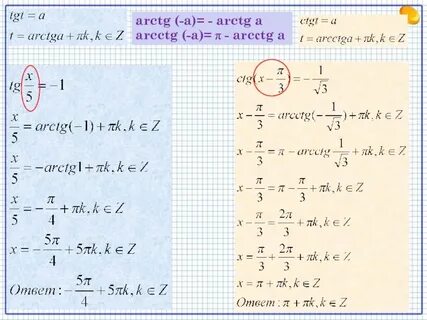 tgt = a
t = arctga + πk, k ∈ Z
arctg (-a)= - arctg a
arcctg (-a)= π - arcctg a
ctgt = a
t = arcctga + πk, k ∈ Z
tg x/5 = −1
x/5 = arctg(−1) + πk, k ∈ Z
x/5 = −arctg1 + πk, k ∈ Z
x/5 = −π/4 + πk, k ∈ Z
x = −5π/4 + 5πk, k ∈ Z
Ответ: −5π/4 + 5πk, k ∈ Z
ctg(x − π/3) = −1/√3
x − π/3 = arcctg(−1/√3) + πk, k ∈ Z
x − π/3 = π − arcctg 1/√3 + πk, k ∈ Z
x − π/3 = π − π/3 + πk, k ∈ Z
x − π/3 = 2π/3 + πk, k ∈ Z
x = π/3 + 2π/3 + πk, k ∈ Z
x = π + πk, k ∈ Z
Ответ: π + πk, k ∈ Z